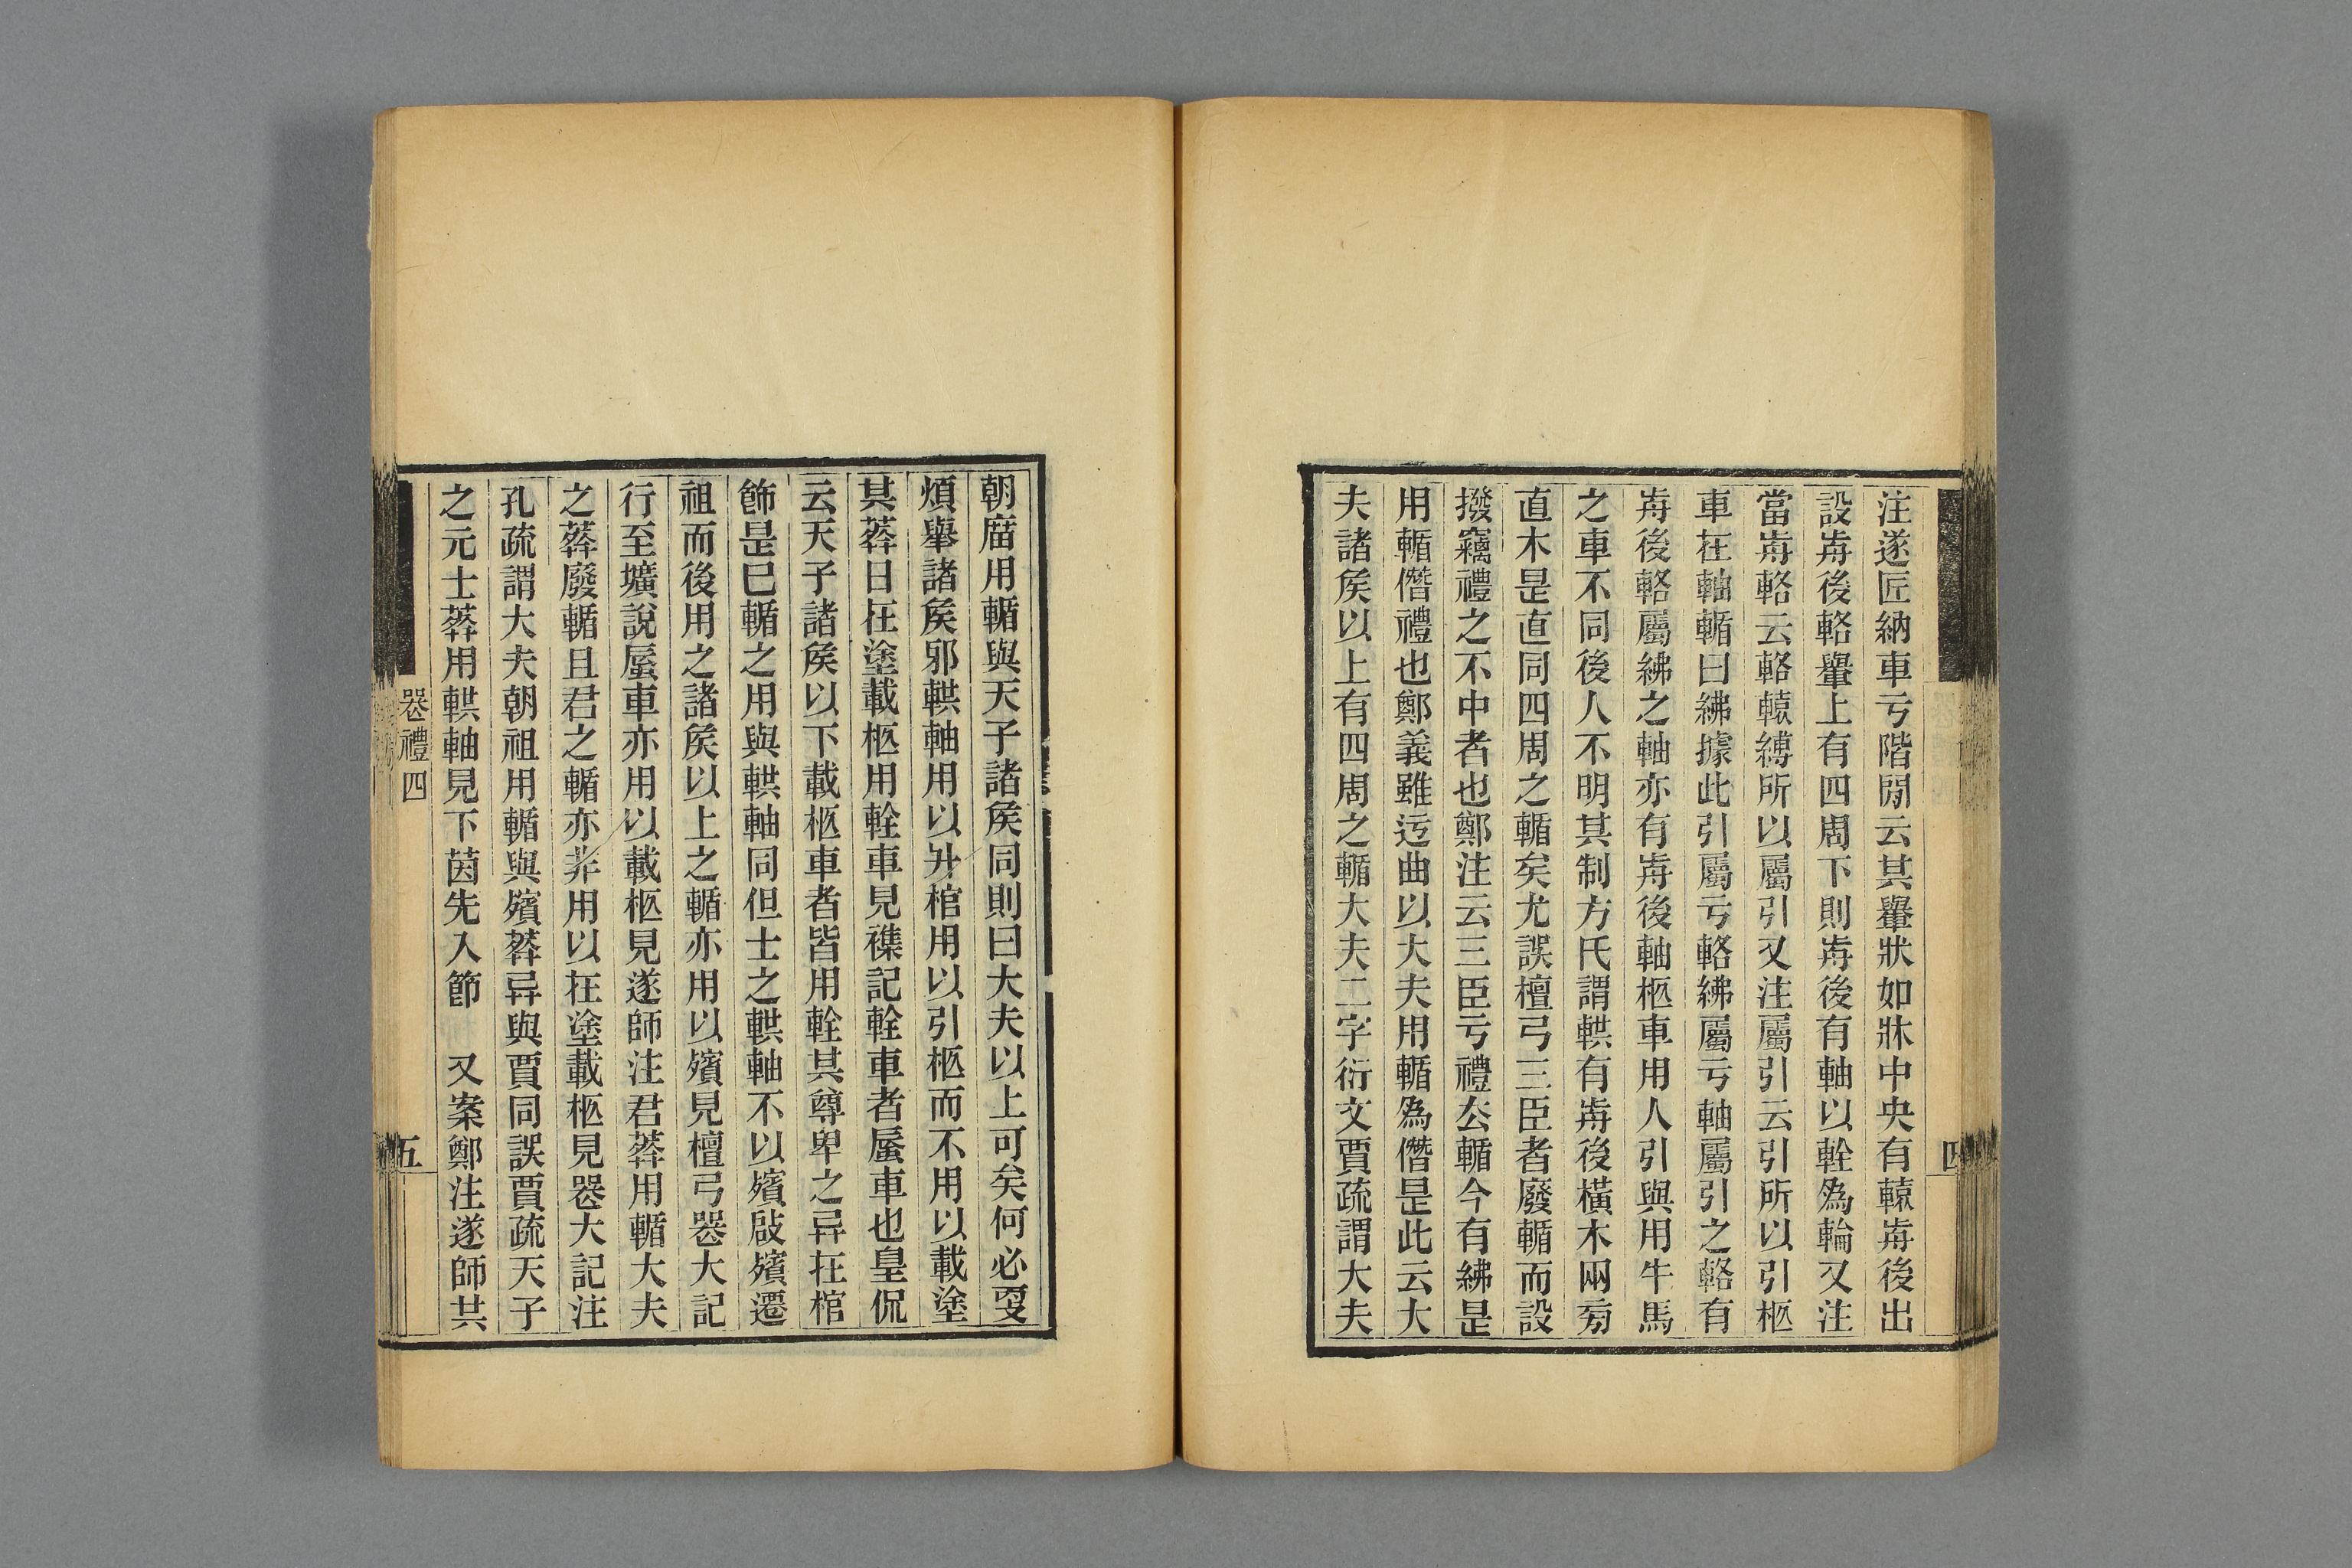 注遂匠納車亏階閒云其轝狀如牀中央有轅歬後出
設歬後輅轝上有四周下則歬後有軸以輇為輪又注
當歬輅云輅轅縛所以屬引又注屬引云引所以引柩
車在軸輴曰紼據此引屬亏輅紼屬亏軸屬引之輅有
歬後輅屬紼之軸亦有歬後軸柩車用人引與用牛馬
之車不同後人不明其制方氏謂輁有歬後橫木兩㫄
直木是直同四周之輴矣尤誤檀弓三臣者廢輴而設
撥竊禮之不中者也鄭注云三臣亏禮公輴今有紼是
用輴僭禮也鄭義雖迃曲以大夫用輴為僭是此云大
夫諸矦以上有四周之輴大夫二字衍文賈疏謂大夫
四
朝庿用輴與天子諸矦同則曰大夫以上可矣何必㪅
煩舉諸矦邪輁軸用以升棺用以引柩而不用以載塗
其葬日在塗載柩用輇車見襍記輇車者蜃車也皇侃
云天子諸矦以下載柩車者皆用輇其尊卑之异在棺
飾是已輴之用與輁軸同但士之輁軸不以殯啟殯遷
祖而後用之諸矦以上之輴亦用以殯見檀弓喪大記
行至壙說蜃車亦用以載柩見遂師注君葬用輴大夫
之葬廢輴且君之輴亦非用以在塗載柩見喪大記注
孔疏謂大夫朝祖用輴與殯葬异與賈同誤賈疏天子
之元士葬用輁軸見下茵先入節 又案鄭注遂師共
喪禮四
五